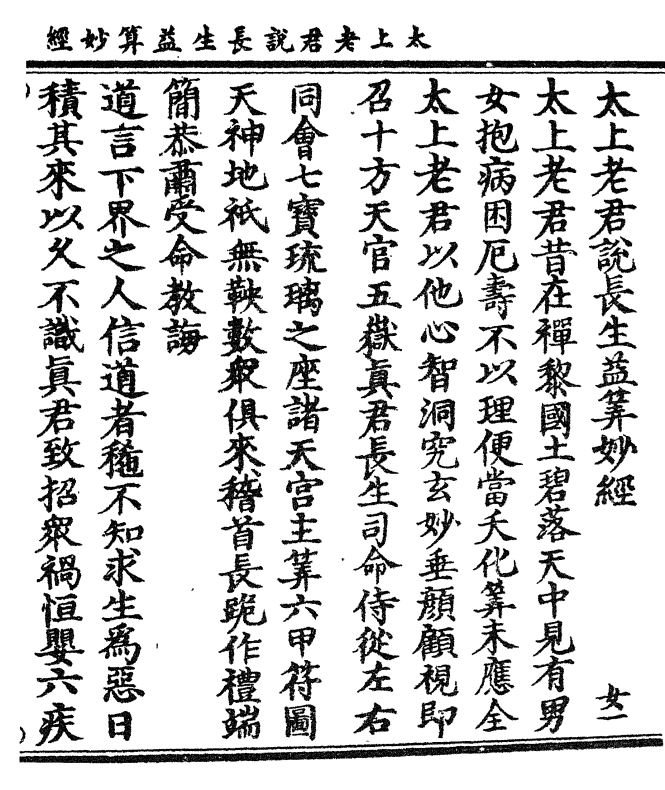 太上老君說長生益算妙經
太上老君說長生益筭妙經 女一
太上老君昔在禪黎國土碧落天中見有男
女抱病困厄壽不以理便當夭化筭未應全
太上老君以他心智洞究玄妙垂顏顧視即
召十方天官五嶽眞君長生司命侍從左右
同會七寶琉璃之座諸天宫主筭六甲符圖
天神地祇無鞅數衆俱來稽首長跪作禮端
簡恭肅受命教誨
道言下界之人信道者稀不知求生爲惡日
積其來以久不識眞君致招衆禍恒嬰六疾